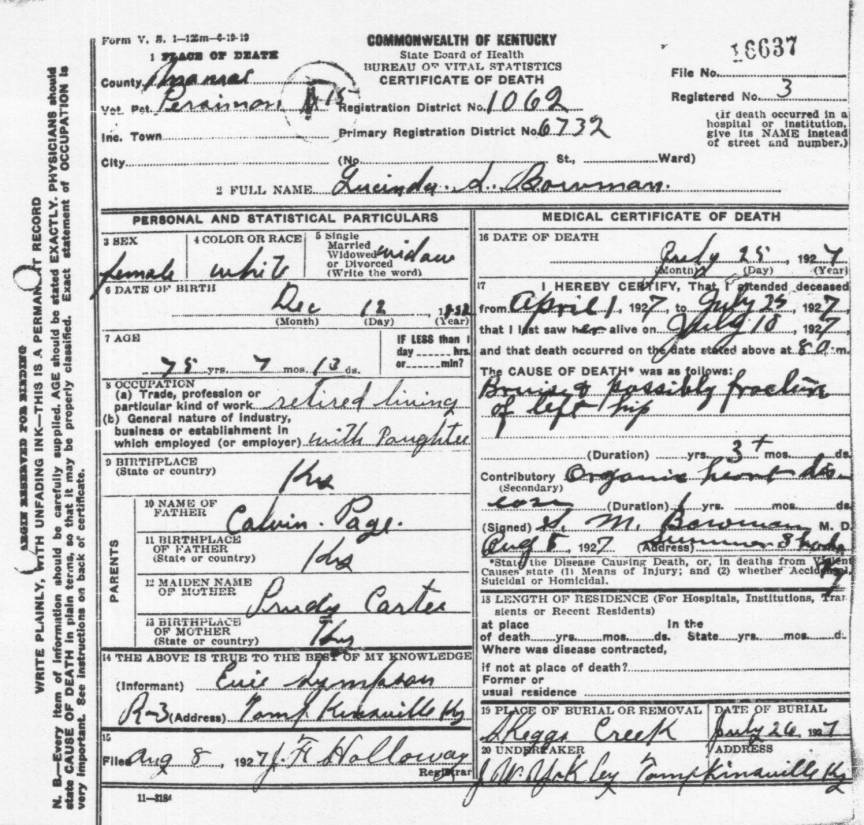 Form V. S. 1—12m—6-19-19
COMMONWEALTH OF KENTUCKY
State Board of Health
BUREAU OF VITAL STATISTICS
CERTIFICATE OF DEATH
1 PLACE OF DEATH
County
Vot. Pct. Persimon 15
Inc. Town
City
(No. St., Ward)
Registration District No. 1062
Primary Registration District No. 6732
16637
File No.
Registered No. 3
(If death occurred in a
hospital or institution,
give its NAME instead
of street and number.)
2 FULL NAME Lucinda A. Bowman.
PERSONAL AND STATISTICAL PARTICULARS
3 SEX
female
4 COLOR OR RACE
white
5 Single
Married
Widowed
or Divorced
(Write the word)
widow
6 DATE OF BIRTH
Dec 12, 1852
(Month) (Day) (Year)
7 AGE
75 yrs. 7 mos. 13 ds.
IF LESS than 1
day ...... hrs.
or ...... min?
8 OCCUPATION
(a) Trade, profession or
particular kind of work retired living
(b) General nature of industry,
business or establishment in
which employed (or employer) with Daughter
9 BIRTHPLACE
(State or country)
Ky
PARENTS
10 NAME OF
FATHER
Calvin. Page.
11 BIRTHPLACE
OF FATHER
(State or country)
Ky
12 MAIDEN NAME
OF MOTHER
Prudy Carter
13 BIRTHPLACE
OF MOTHER
(State or country)
Ky
14 THE ABOVE IS TRUE TO THE BEST OF MY KNOWLEDGE
(Informant) Evie Sympson
R-3 (Address) Tompkinsville Ky
15
Filed Aug 8, 1927 J. F. Holloway
Registrar
11—3184
MEDICAL CERTIFICATE OF DEATH
16 DATE OF DEATH
July 25, 1927
(Month) (Day) (Year)
17 I HEREBY CERTIFY, That I attended deceased
from April 1, 1927, to July 25, 1927,
that I last saw her alive on July 10, 1927,
and that death occurred on the date stated above at 8 a m.
The CAUSE OF DEATH* was as follows:
Bruise & possibly fracture
of left hip
(Duration) yrs. 3+ mos. ds.
Contributory Organic heart dis
(Secondary)
ease (Duration) yrs. mos. ds.
(Signed) M. Bowman M. D.
Aug 5, 1927 (Address) Summer Shade
Ky
*State the Disease Causing Death, or, in deaths from Violent
Causes state (1) Means of Injury; and (2) whether Accidental,
Suicidal or Homicidal.
18 LENGTH OF RESIDENCE (For Hospitals, Institutions, Tran
sients or Recent Residents)
at place In the
of death yrs. mos. ds. State yrs. mos. d.
Where was disease contracted,
if not at place of death?
Former or
usual residence
19 PLACE OF BURIAL OR REMOVAL
Skeggs Creek
DATE OF BURIAL
July 26, 1927
20 UNDERTAKER
J. W. Yokley
ADDRESS
Tompkinsville Ky
MARGIN RESERVED FOR BINDING
WRITE PLAINLY, WITH UNFADING INK—THIS IS A PERMANENT RECORD
N. B.—Every item of information should be carefully supplied. AGE should be stated EXACTLY. PHYSICIANS should
state CAUSE OF DEATH in plain terms, so that it may be properly classified. Exact statement of OCCUPATION is
very important. See instructions on back of certificate.